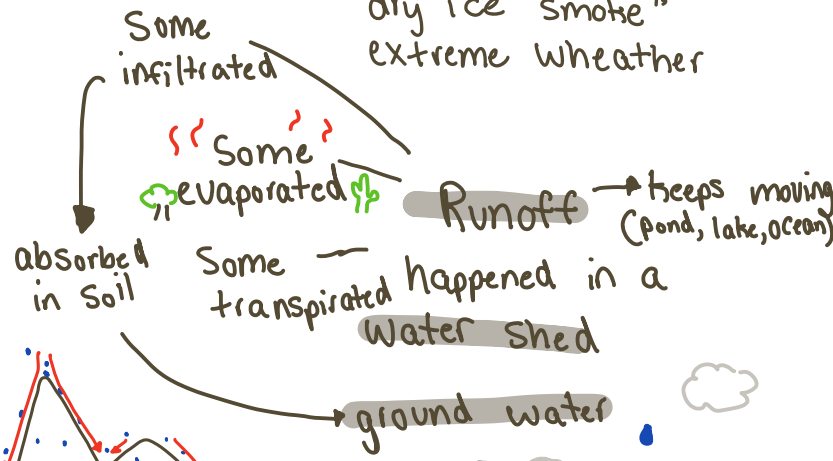 dry ice smoke"
extreme wheather
Some
infiltrated
Some
evaporated
Runoff
keeps moving
(pond, lake, ocean)
absorbed
in soil
Some
transpirated
happened in a
water shed
ground water